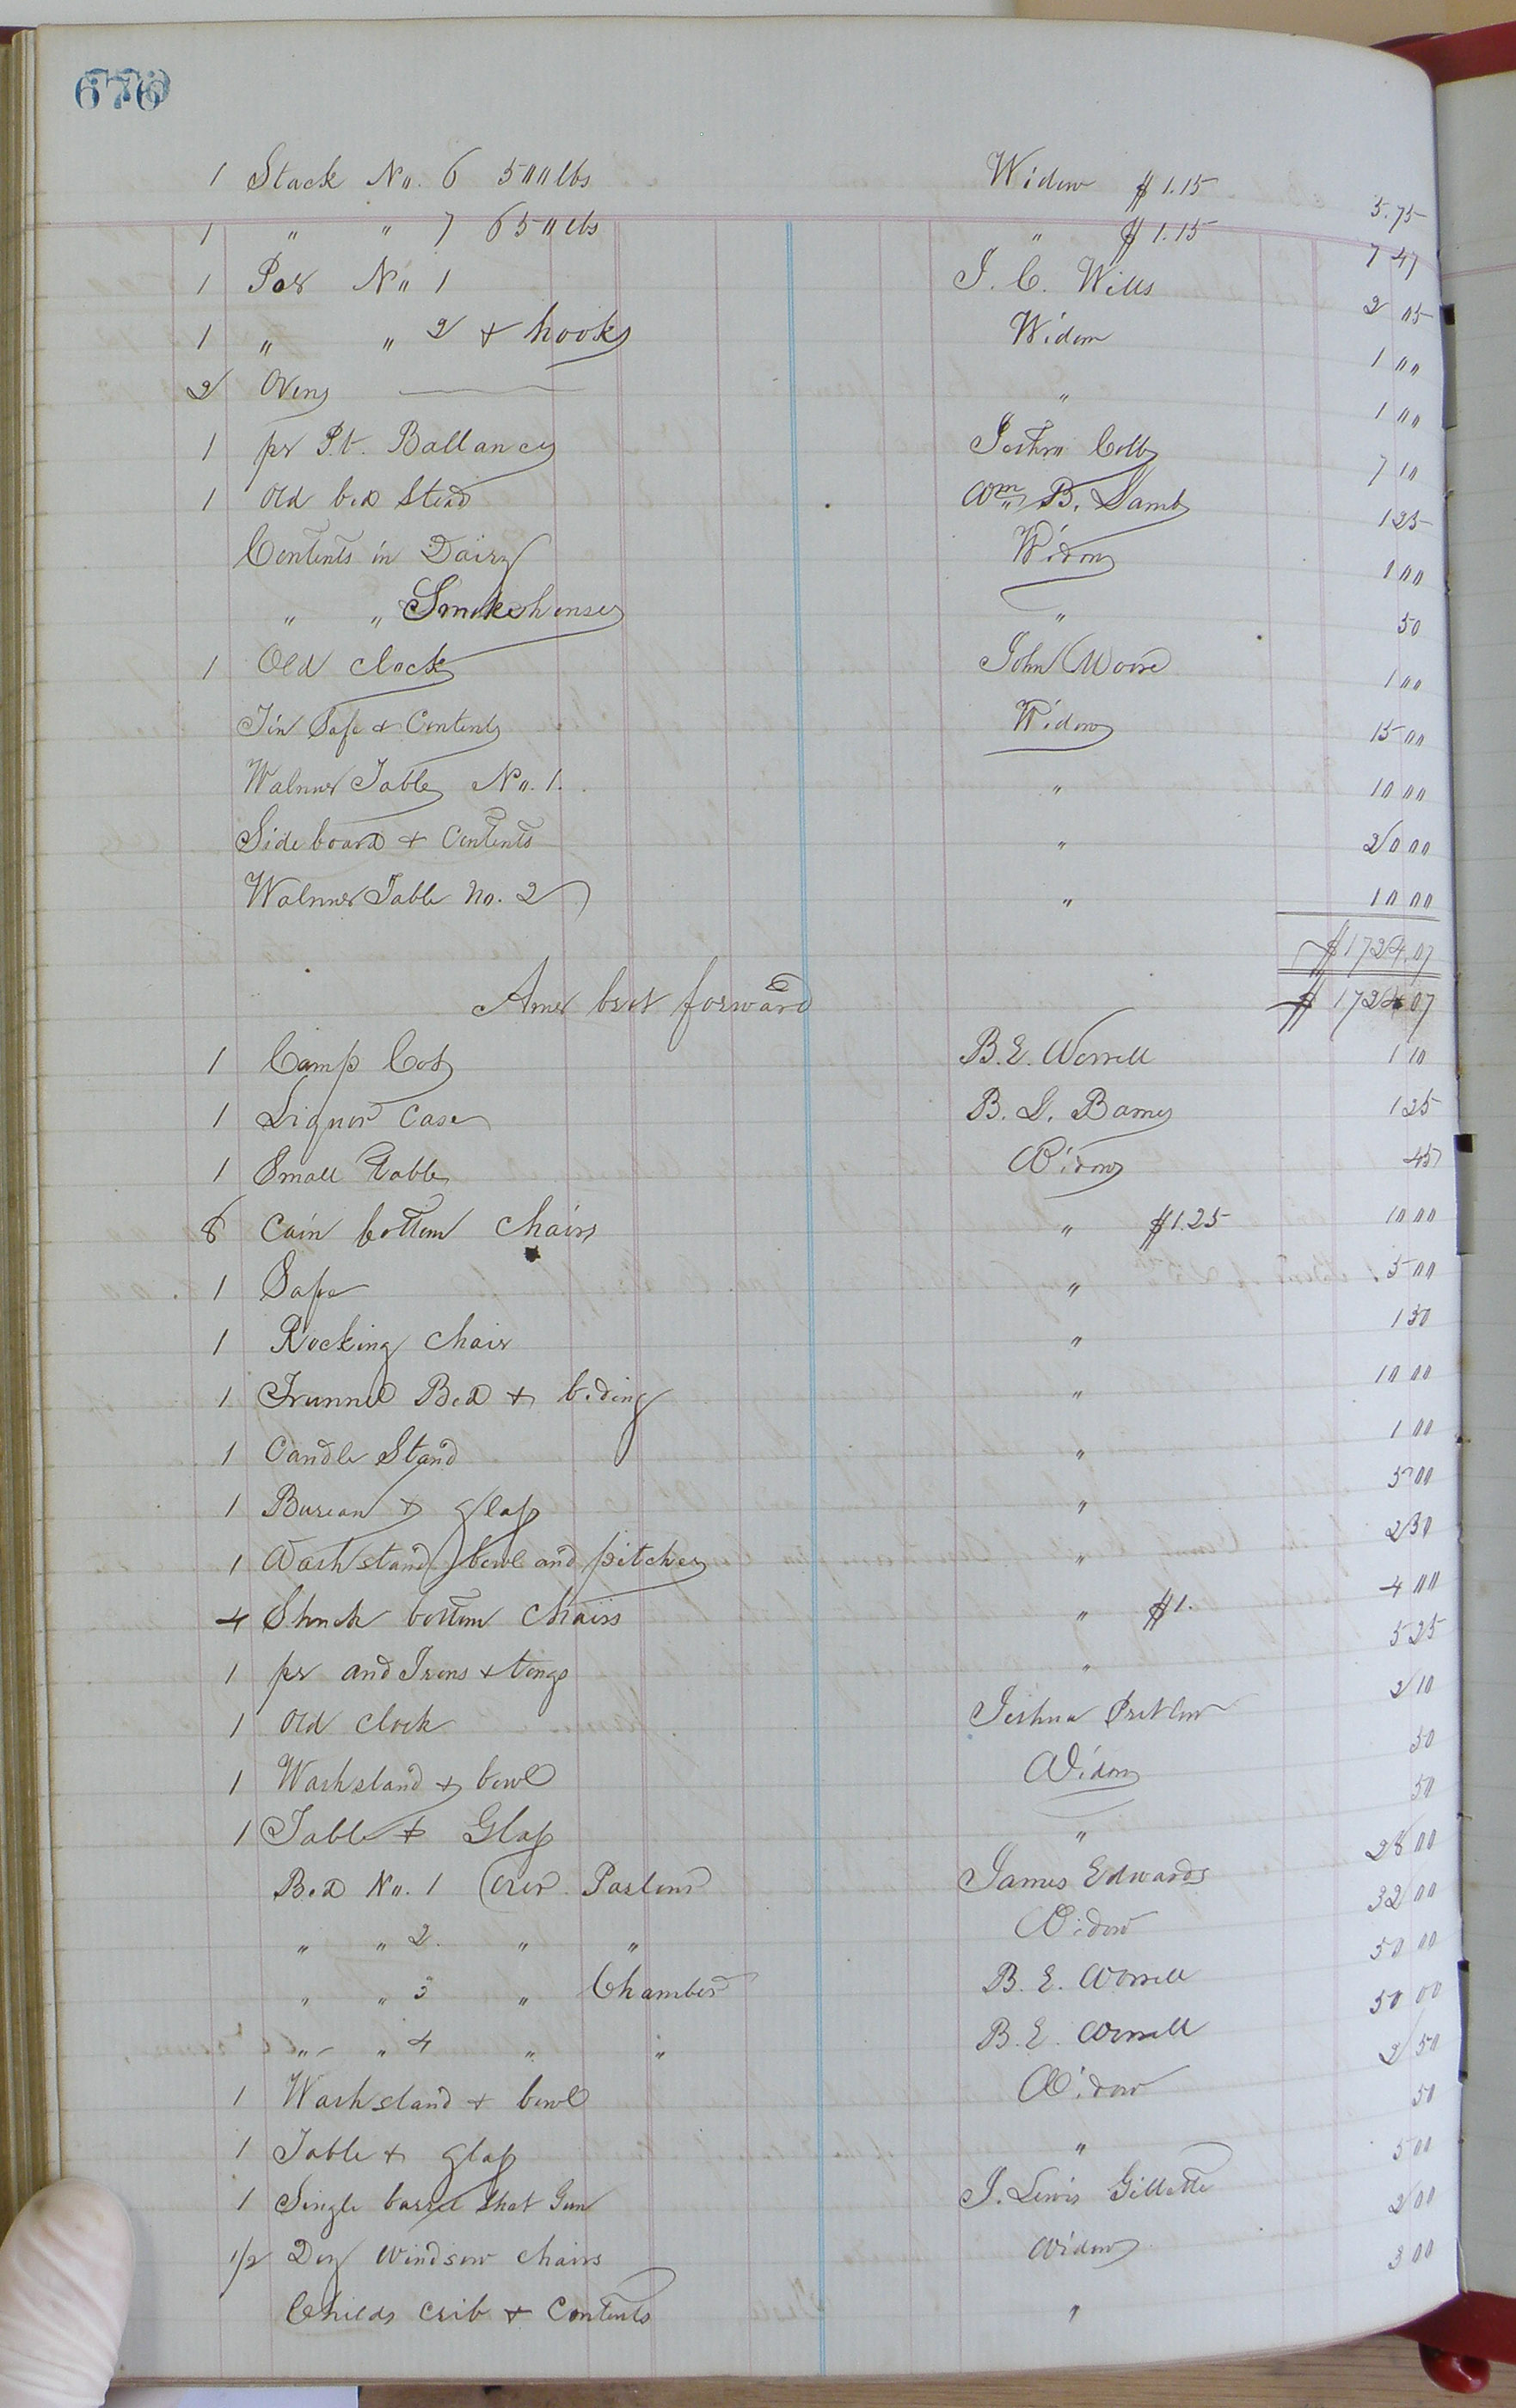 676
1 Stack No. 6 500 lbs Widow $1.15 5.75
1 " " 7 650 lbs " $1.15 7 47
1 Pot No 1 J. C. Wills 2 05
1 " " 2 & hooks Widow 1 00
2 Ovens " 1 00
1 pr Pt. Ballances Joshua Cobb 7 10
1 Old bed Stead Wm B. Lamb 1 25
Contents in Dairy Widow 1 00
" " Smokehouse " 50
1 Old clock John Moore 1 00
Tin Safe & Contents Widow 15 00
Walnut Table No. 1. " 10 00
Side board & Contents " 20 00
Walnut Table No. 2 " 10 00
$1724.07
Amt brot forward $1724 07
1 Camp Cot B. E. Worrell 1 10
1 Liquor Case B. L. Barnes 1 25
1 Small Table Widow 45
8 Cain bottom Chairs " $1.25 10 00
1 Safe " 5 00
1 Rocking Chair " 1 50
1 Trunnel Bed & beding " 10 00
1 Candle Stand " 1 00
1 Bureau & glass " 5 00
1 Wash stand bowl and pitcher " 2 50
4 Shuck bottom Chairs " $1. 4 00
1 pr and Irons & tongs " 5 25
1 Old Clock Joshua Pretlow 2 10
1 Washstand & bowl Widow 50
1 Table & Glass " 50
Bed No. 1 Over Parlour James Edwards 28 00
" " 2. " " Widow 32 00
" " 3 " Chamber B. E. Worrell 50 00
" " 4 " " B. E. Worrell 50 00
1 Washstand & bowl Widow 2 50
1 Table & glass " 50
1 Single barrel Shot Gun J. Lewis Gillette 5 00
1/2 Doz Windsor Chairs Widow 2 00
Childs Crib & Contents " 3 00